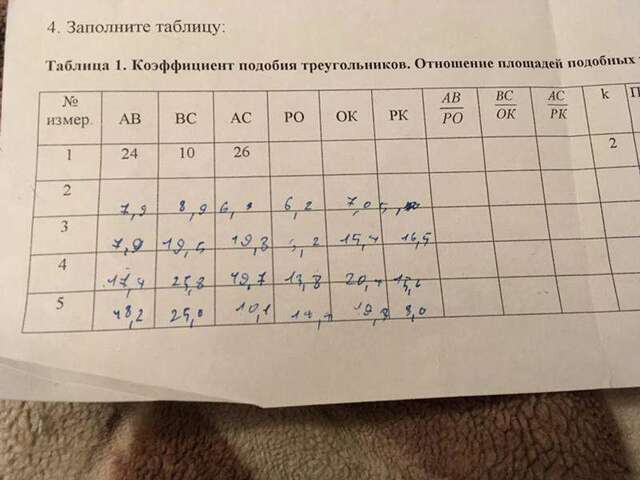 4. Заполните таблицу:
Таблица 1. Коэффициент подобия треугольников. Отношение площадей подобных
№ измер. АВ ВС АС РО ОК РК АВ/РО ВС/ОК АС/РК k П
1 24 10 26 2
2 7,9 8,9 6,2 7,0
3 7,9 19,5 19,8 15,4 16,5
4 17,4 25,8 19,7 13,8 20,4 15,6
5 18,2 25,0 10,1 19,8 8,0